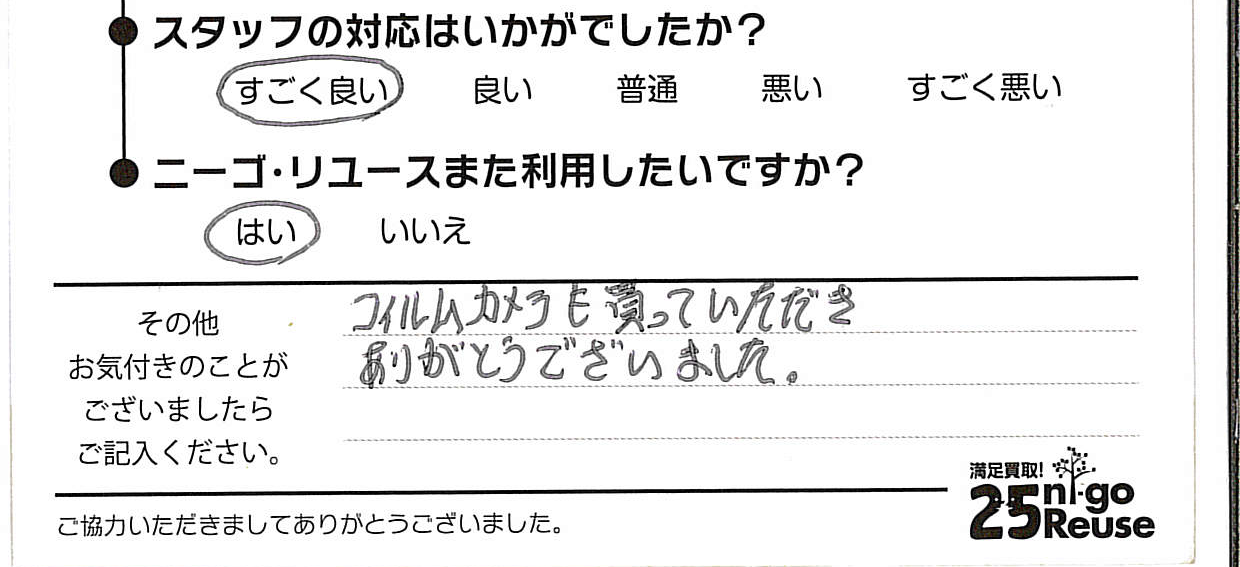 スタッフの対応はいかがでしたか？
すごく良い 良い 普通 悪い すごく悪い
ニーゴ・リユースまた利用したいですか？
はい いいえ
フィルムカメラも買っていただき
ありがとうございました。
その他
お気付きのことが
ございましたら
ご記入ください。
満足買取!
25 ni-go
Reuse
ご協力いただきましてありがとうございました。